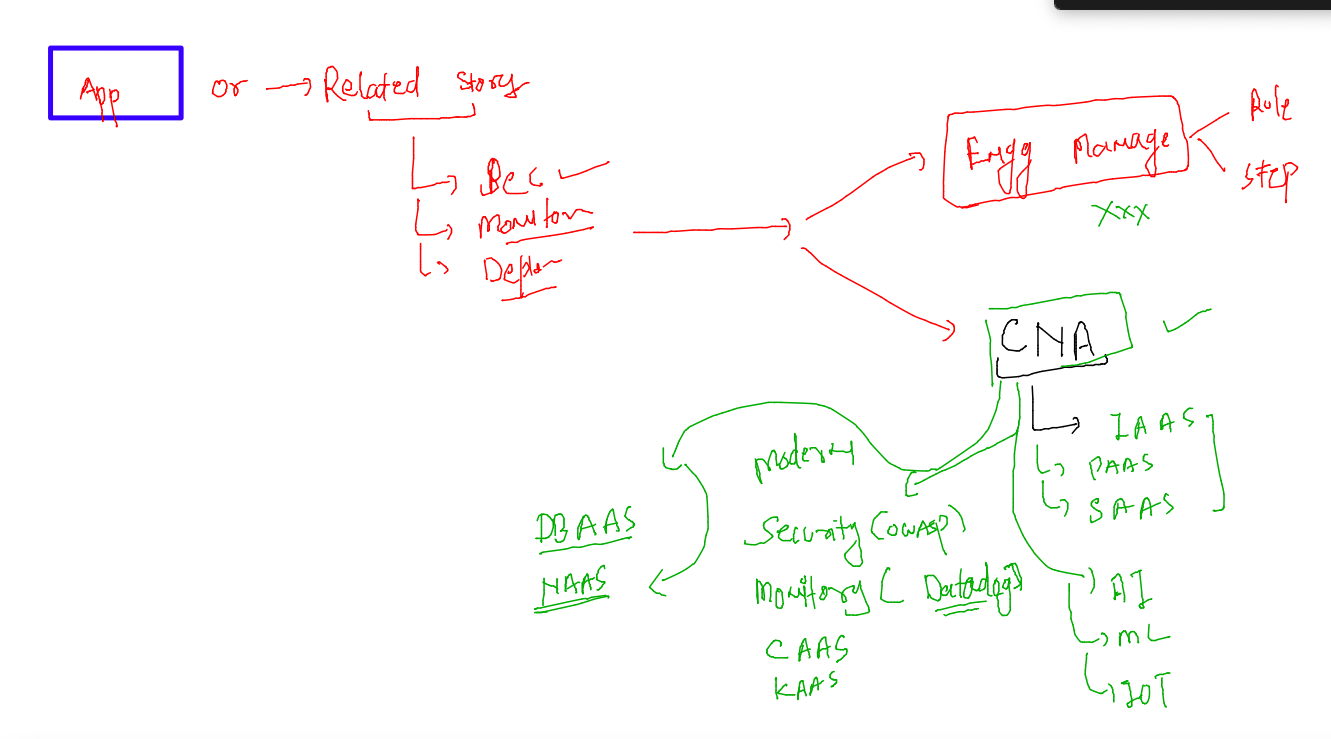 App or Related Story
Sec
Monitor
Deplo
Engg Manage
Role
Step
XXX
CNA
IAAS
PAAS
SAAS
modern
Security (OWASP)
Monitory ( Datadog)
CAAS
KAAS
DBAAS
NAAS
AI
ML
IOT